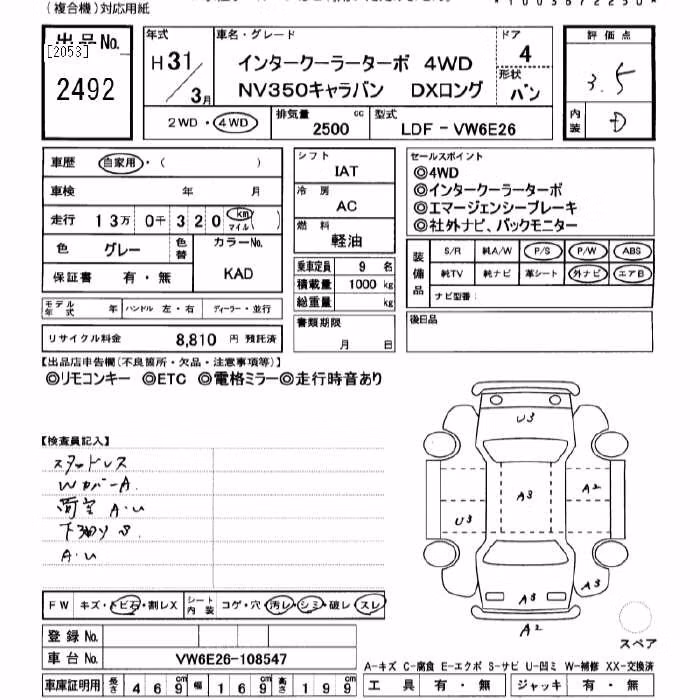 (複合機)対応用紙
出品No. [2053] 2492
年式 H31/3月
車名・グレード インタークーラーターボ 4WD
NV350キャラバン DXロング
ドア 4
形状 バン
評価点 3.5
内装 D
2WD・4WD 排気量 2500 cc 型式 LDF-VW6E26
車歴 自家用・( )
車検 年 月
走行 13万 0千 320 km マイル
色 グレー 色替 カラーNo. KAD
保証書 有・無
モデル年式 年 ハンドル 左・右 ディーラー・並行
リサイクル料金 8,810 円 預託済
シフト IAT
冷房 AC
燃料 軽油
乗車定員 9 名
積載量 1000 kg
総重量 kg
書類期限 月 日
セールスポイント
◎4WD
◎インタークーラーターボ
◎エマージェンシーブレーキ
◎社外ナビ、バックモニター
装備品 S/R 純A/W P/S P/W ABS
純TV 純ナビ 革シート 外ナビ エアB
ナビ型番:
後日品
【出品店申告欄(不良箇所・欠品・注意事項等)】
◎リモコンキー ◎ETC ◎電格ミラー◎走行時音あり
【検査員記入】
スタッドレス
Wカバー A.
荷室 A.U
下廻り S
A.U
U3
A3
A2
U3
A3
A3
A2
FW キズ・トビ石・割レX シート内装 コゲ・穴・汚レ・シミ・破レ・スレ
登録No.
車台No. VW6E26-108547
スペア
A-キズ C-腐食 E-エクボ S-サビ U-凹ミ W-補修 XX-交換済
車庫証明用 長さ 469 cm 幅 169 cm 高さ 199 cm
工具 有・無 ジャッキ 有・無